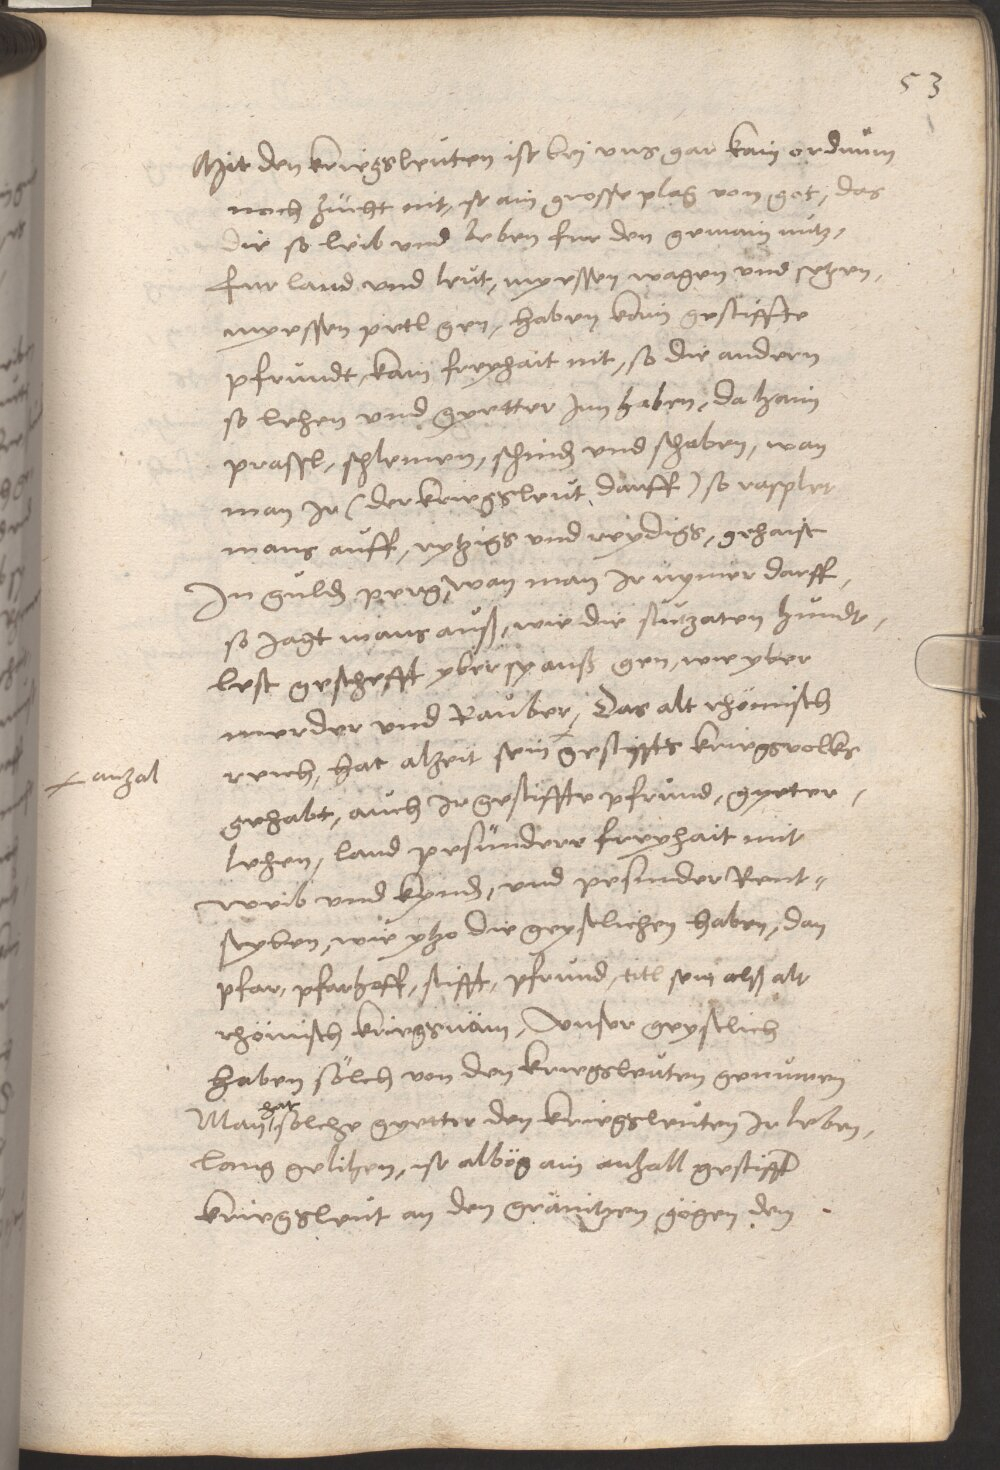 53
Mit den kriegsleuten ist bej uns gar kain ordnum
noch zucht nit, ist ain grosse plag von got, das
die so leib und leben fur den gemain nutz,
fur land und leut, muessen wagen und setzen,
muessen petl gen, haben kain gestiffte
pfrundt, kain freyhait nit, so die andern
so lehen und guetter inn haben, dahaim
prassl, schlemen, schind und schaben, wan
man ir (der kriegsleut darff) so rasplet
mans auff, rytzigs und reydigs, gehaist
in guld perg, wan man ir nymer darff,
so jagt mans auß, wie die hundt,
lest geschefft yber sy auß gen, wie yber
merder und Rauber, Das alt rhömisch
reich, hat alzeit sein gestiffts kriegsvolks
anzal
gehabt, auch ir gestiffte pfrund, gueter,
lehen, land pesundere freyhait mit
weib und kynd, und pesunder Rent
, wie ytzo die geystlichen haben, dan
pfar, pfarhoff, stifft, pfrund, titl sein alß alt
rhömisch kriegsnäm, Unser geystlich
haben sölch von den kriegsleuten genumen
Man hat solche guetter den kriegsleuten ir leben
lang gelihen, ist albög ain anzall gestifft
kriegsleut an den gränitzen gögen den